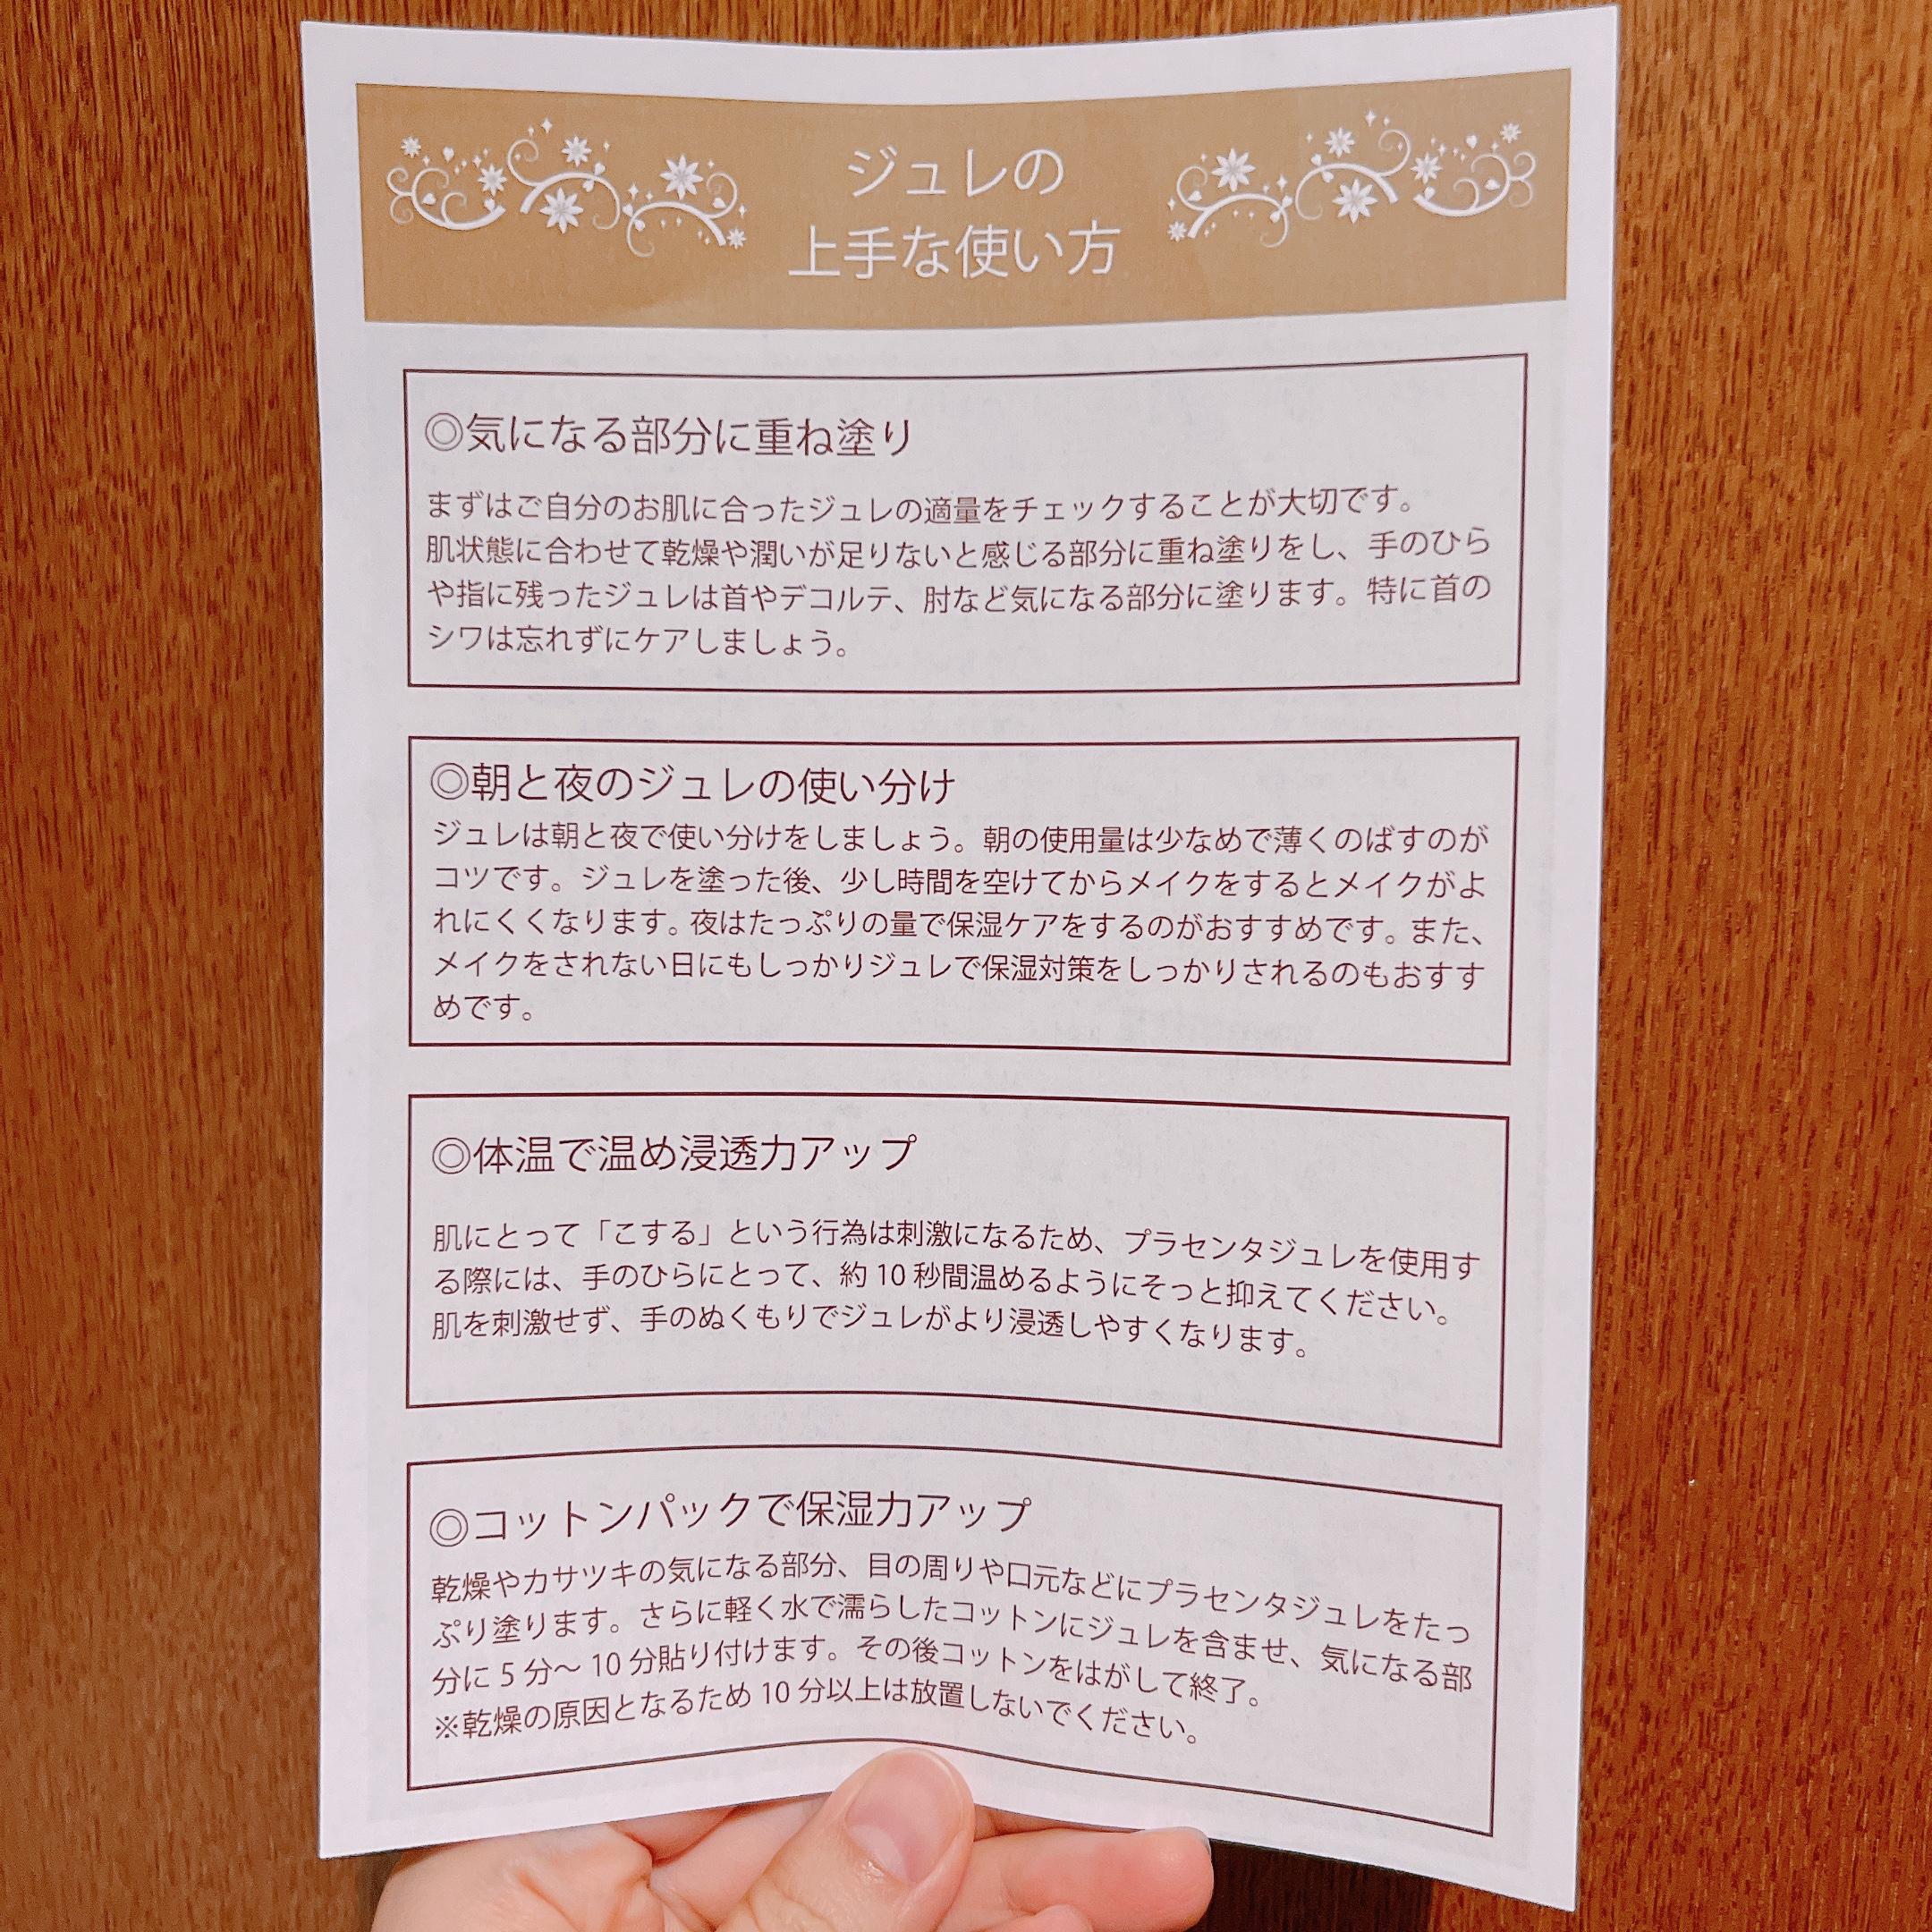 ジュレの
上手な使い方
◎気になる部分に重ね塗り
まずはご自分のお肌に合ったジュレの適量をチェックすることが大切です。
肌状態に合わせて乾燥や潤いが足りないと感じる部分に重ね塗りをし、手のひら
や指に残ったジュレは首やデコルテ、肘など気になる部分に塗ります。特に首の
シワは忘れずにケアしましょう。
◎朝と夜のジュレの使い分け
ジュレは朝と夜で使い分けをしましょう。朝の使用量は少なめで薄くのばすのが
コツです。ジュレを塗った後、少し時間を空けてからメイクをするとメイクがよ
れにくくなります。夜はたっぷりの量で保湿ケアをするのがおすすめです。また、
メイクをされない日にもしっかりジュレで保湿対策をしっかりされるのもおすす
めです。
◎体温で温め浸透力アップ
肌にとって「こする」という行為は刺激になるため、プラセンタジュレを使用す
る際には、手のひらにとって、約 10 秒間温めるようにそっと抑えてください。
肌を刺激せず、手のぬくもりでジュレがより浸透しやすくなります。
◎コットンパックで保湿力アップ
乾燥やカサツキの気になる部分、目の周りや口元などにプラセンタジュレをたっ
ぷり塗ります。さらに軽く水で濡らしたコットンにジュレを含ませ、気になる部
分に 5 分〜 10 分貼り付けます。その後コットンをはがして終了。
※乾燥の原因となるため 10 分以上は放置しないでください。